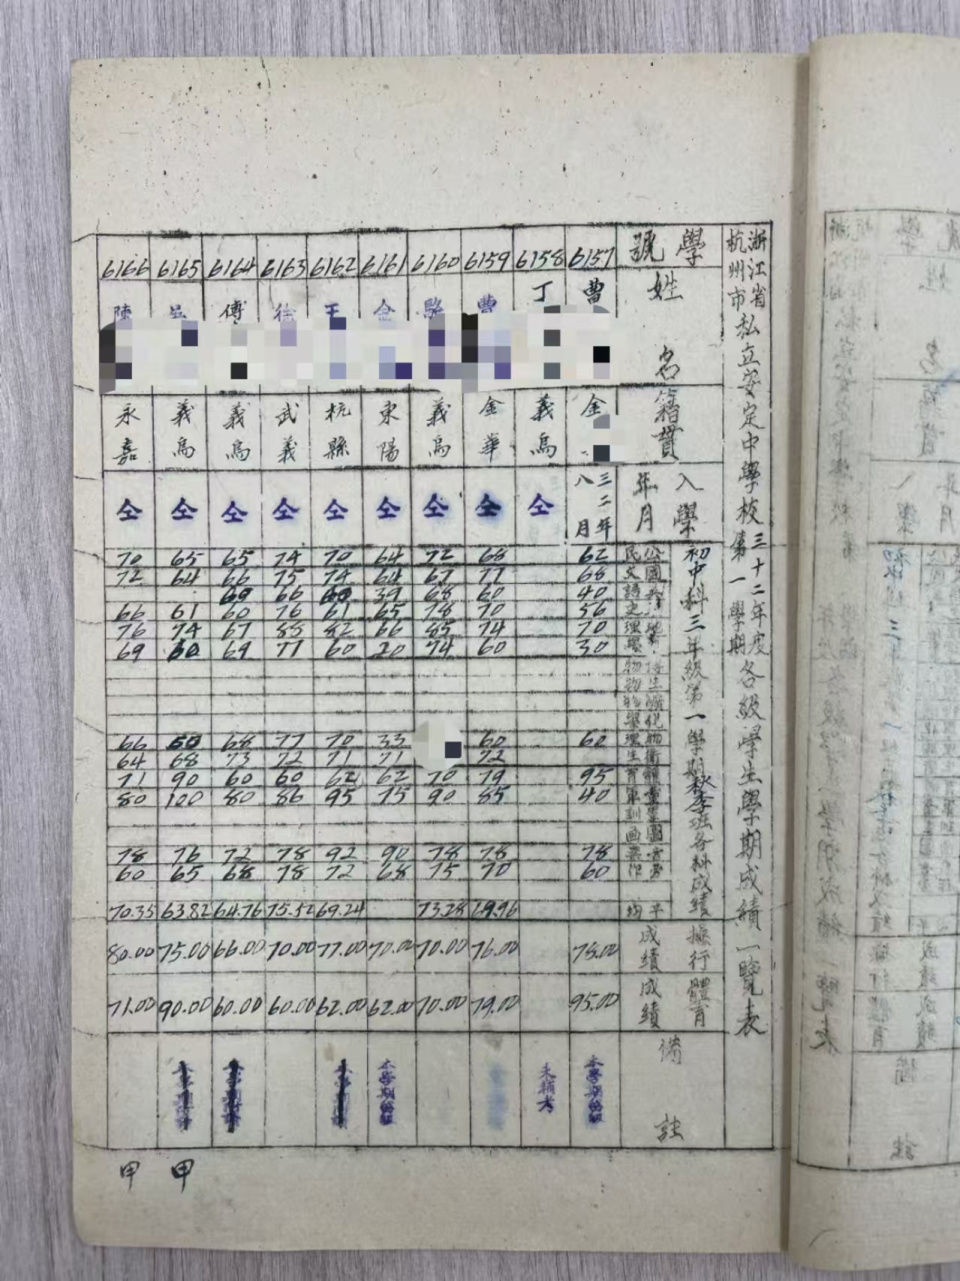 浙江省杭州市私立安定中學校三十二年度第一學期各級學生學期成績一覽表
學號 6157 6158 6159 6160 6161 6162 6163 6164 6165 6166
姓名 曹 丁 曹 駱 金 王 徐 傅 吳 陳
籍貫 金 義烏 金華 義烏 東陽 杭縣 武義 義烏 義烏 永嘉
入學年月 三二年八月 仝 仝 仝 仝 仝 仝 仝 仝 仝
初中科三年級第一學期秋季班各科成績
公民 62 68 72 64 70 74 65 65 70
國文 68 77 67 64 74 75 66 64 72
40 60 68 39 60 66 60
56 70 78 65 61 76 60 61 66
地理 70 74 85 66 82 85 67 74 76
30 60 74 20 60 77 69 60 69
物理 60 60 33 70 77 68 60 66
衛生 72 71 71 72 73 68 64
體育 95 79 70 62 62 60 60 90 71
童軍 40 85 90 75 95 86 80 100 80
圖画 78 78 78 90 92 78 72 76 78
勞作 60 70 75 68 72 78 68 65 60
平均 69.96 73.28 69.24 75.52 64.76 63.82 70.35
操行成績 75.00 76.00 70.00 70.00 77.00 70.00 66.00 75.00 80.00
體育成績 95.00 79.00 70.00 62.00 62.00 60.00 60.00 90.00 71.00
備註 未補考
甲 甲